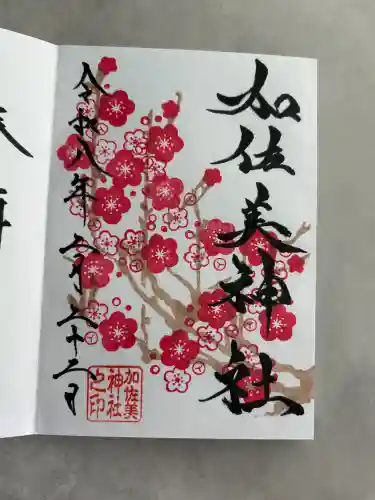 加佐美神社
令和八年
二十二日
加佐美
神社
之印